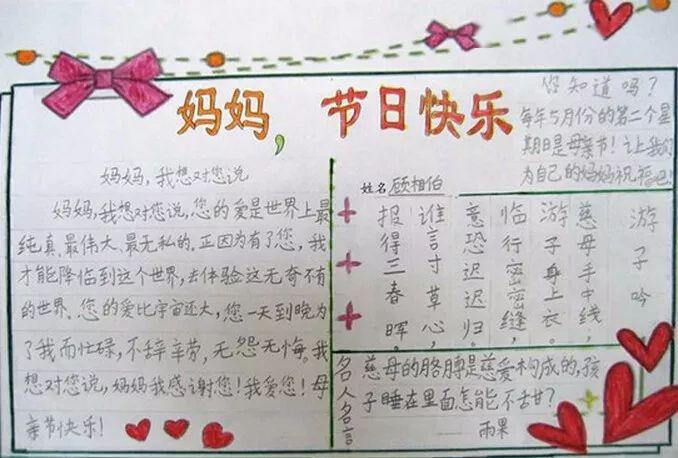 妈妈，节日快乐
你知道吗？
每年5月份的第二个星
期日是母亲节！让我们
为自己的妈妈祝福吧！
妈妈，我想对您说
妈妈，我想对您说，您的爱是世界上最
纯真、最伟大、最无私的。正因为有了您，我
才能降临到这个世界，去体验这无奇不有
的世界、您的爱比宇宙还大，您一天到晚为
了我而忙碌，不辞辛劳，无怨无悔。我
想对您说，妈妈我感谢您！我爱您！母
亲节快乐！
姓名 顾相伯
游子吟
慈母手中线，
游子身上衣。
临行密密缝，
意恐迟迟归。
谁言寸草心，
报得三春晖
名人名言
慈母的胳膊是慈爱构成的，孩
子睡在里面怎能不舌甘？
雨果